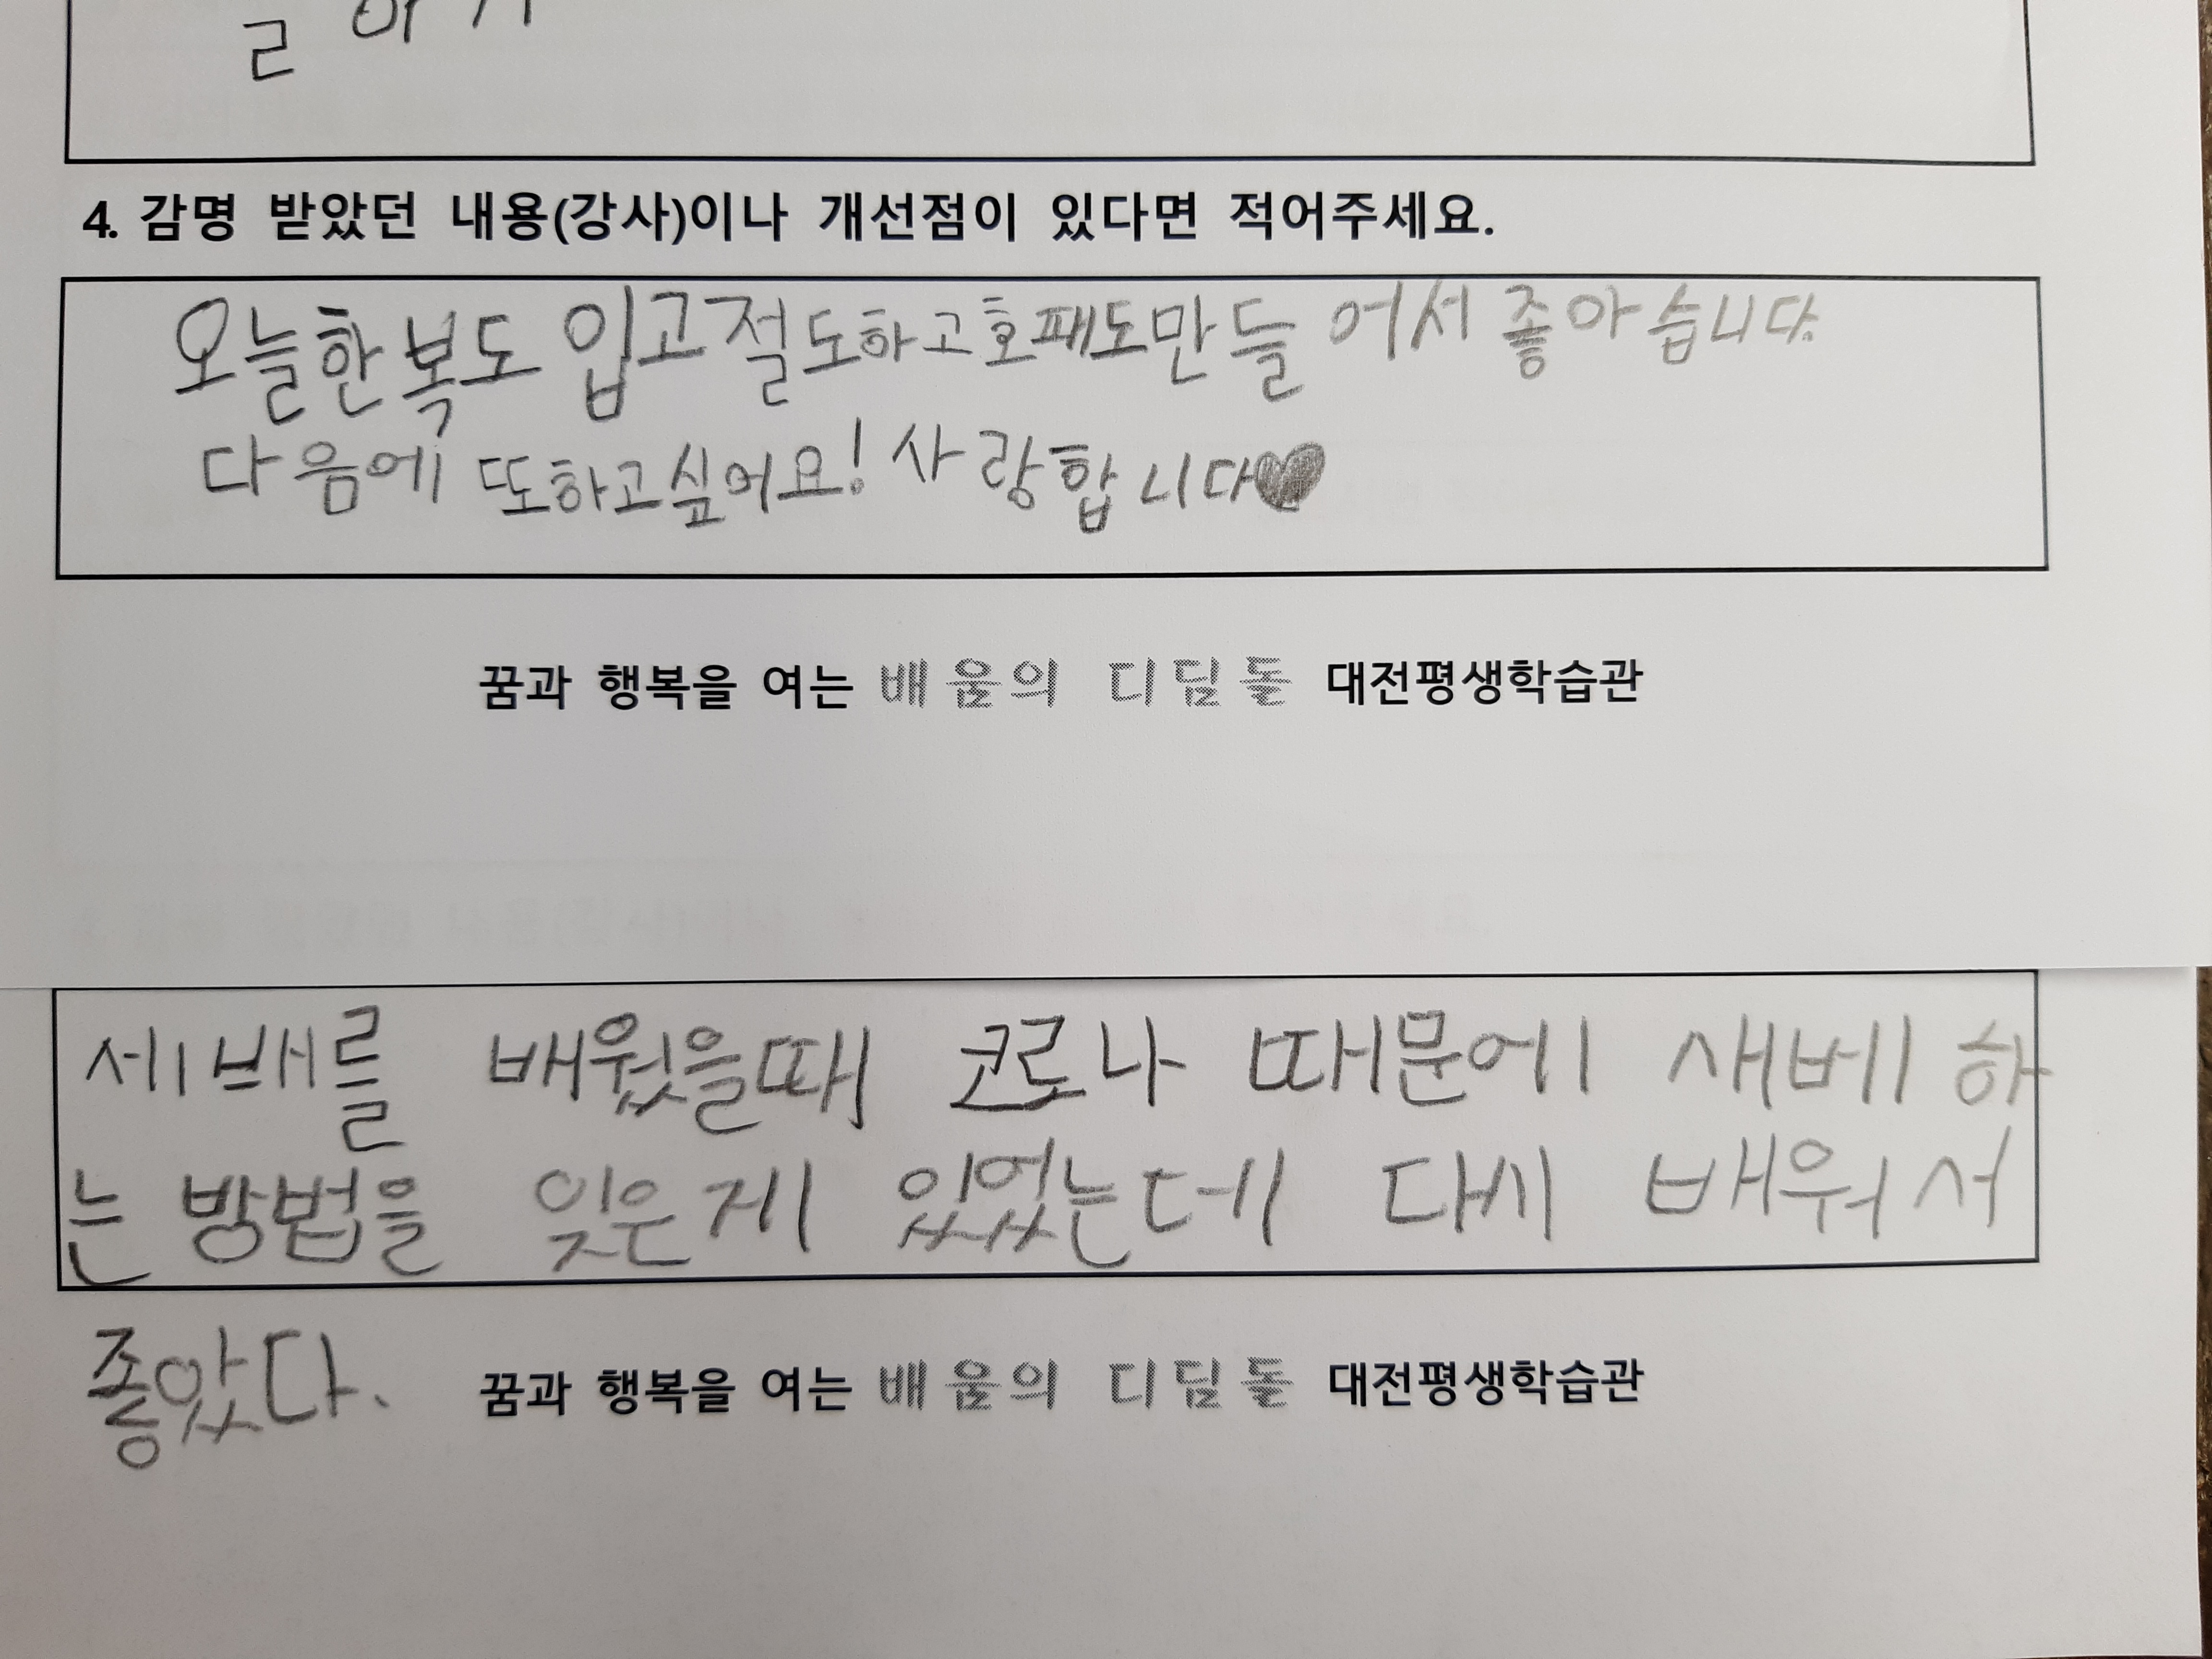 4. 감명 받았던 내용(강사)이나 개선점이 있다면 적어주세요.
오늘한복도 입고절도하고호패도만들어서 좋아습니다.
다음에 또하고싶어요! 사랑합니다♥
꿈과 행복을 여는 배움의 디딤돌 대전평생학습관
세배를 배웠을때 코로나 때문에 새베하
는 방법을 잊은게 있었는데 다시 배워서
좋았다.
꿈과 행복을 여는 배움의 디딤돌 대전평생학습관